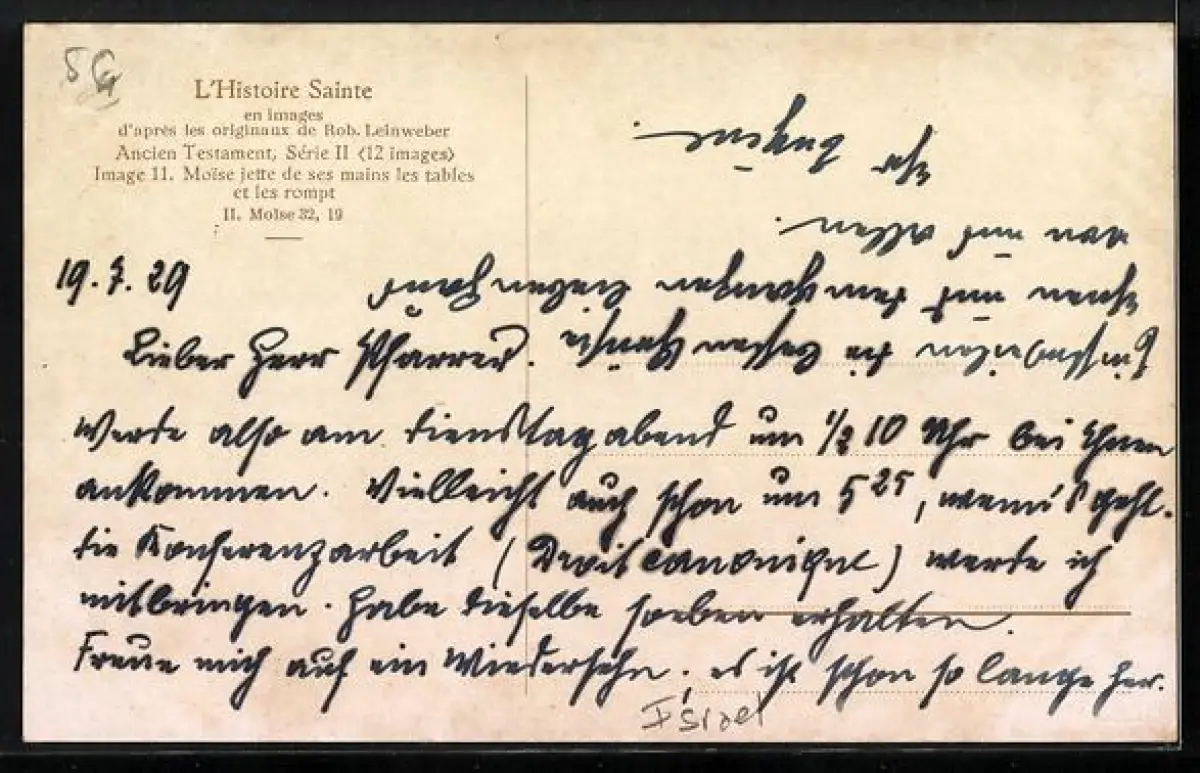 L'Histoire Sainte
en images
d'après les originaux de Rob. Leinweber
Ancien Testament, Série II (12 images)
Image 11. Moïse jette de ses mains les tables
et les rompt
II. Moïse 32, 19
19. 7. 29
Lieber Herr Pfarrer.
Werde also am dienstag abend um 1/2 10 Uhr bei Ihnen
ankommen. Vielleicht auch schon um 5 25, wenn's geht.
die Konferenzarbeit (Droit canonique) werde ich
mitbringen. Habe dieselbe soeben erhalten.
Freue mich auf ein Wiedersehn; es ist schon so lange her.
Ihnen und dem
von uns allen.
Ihr
Israel